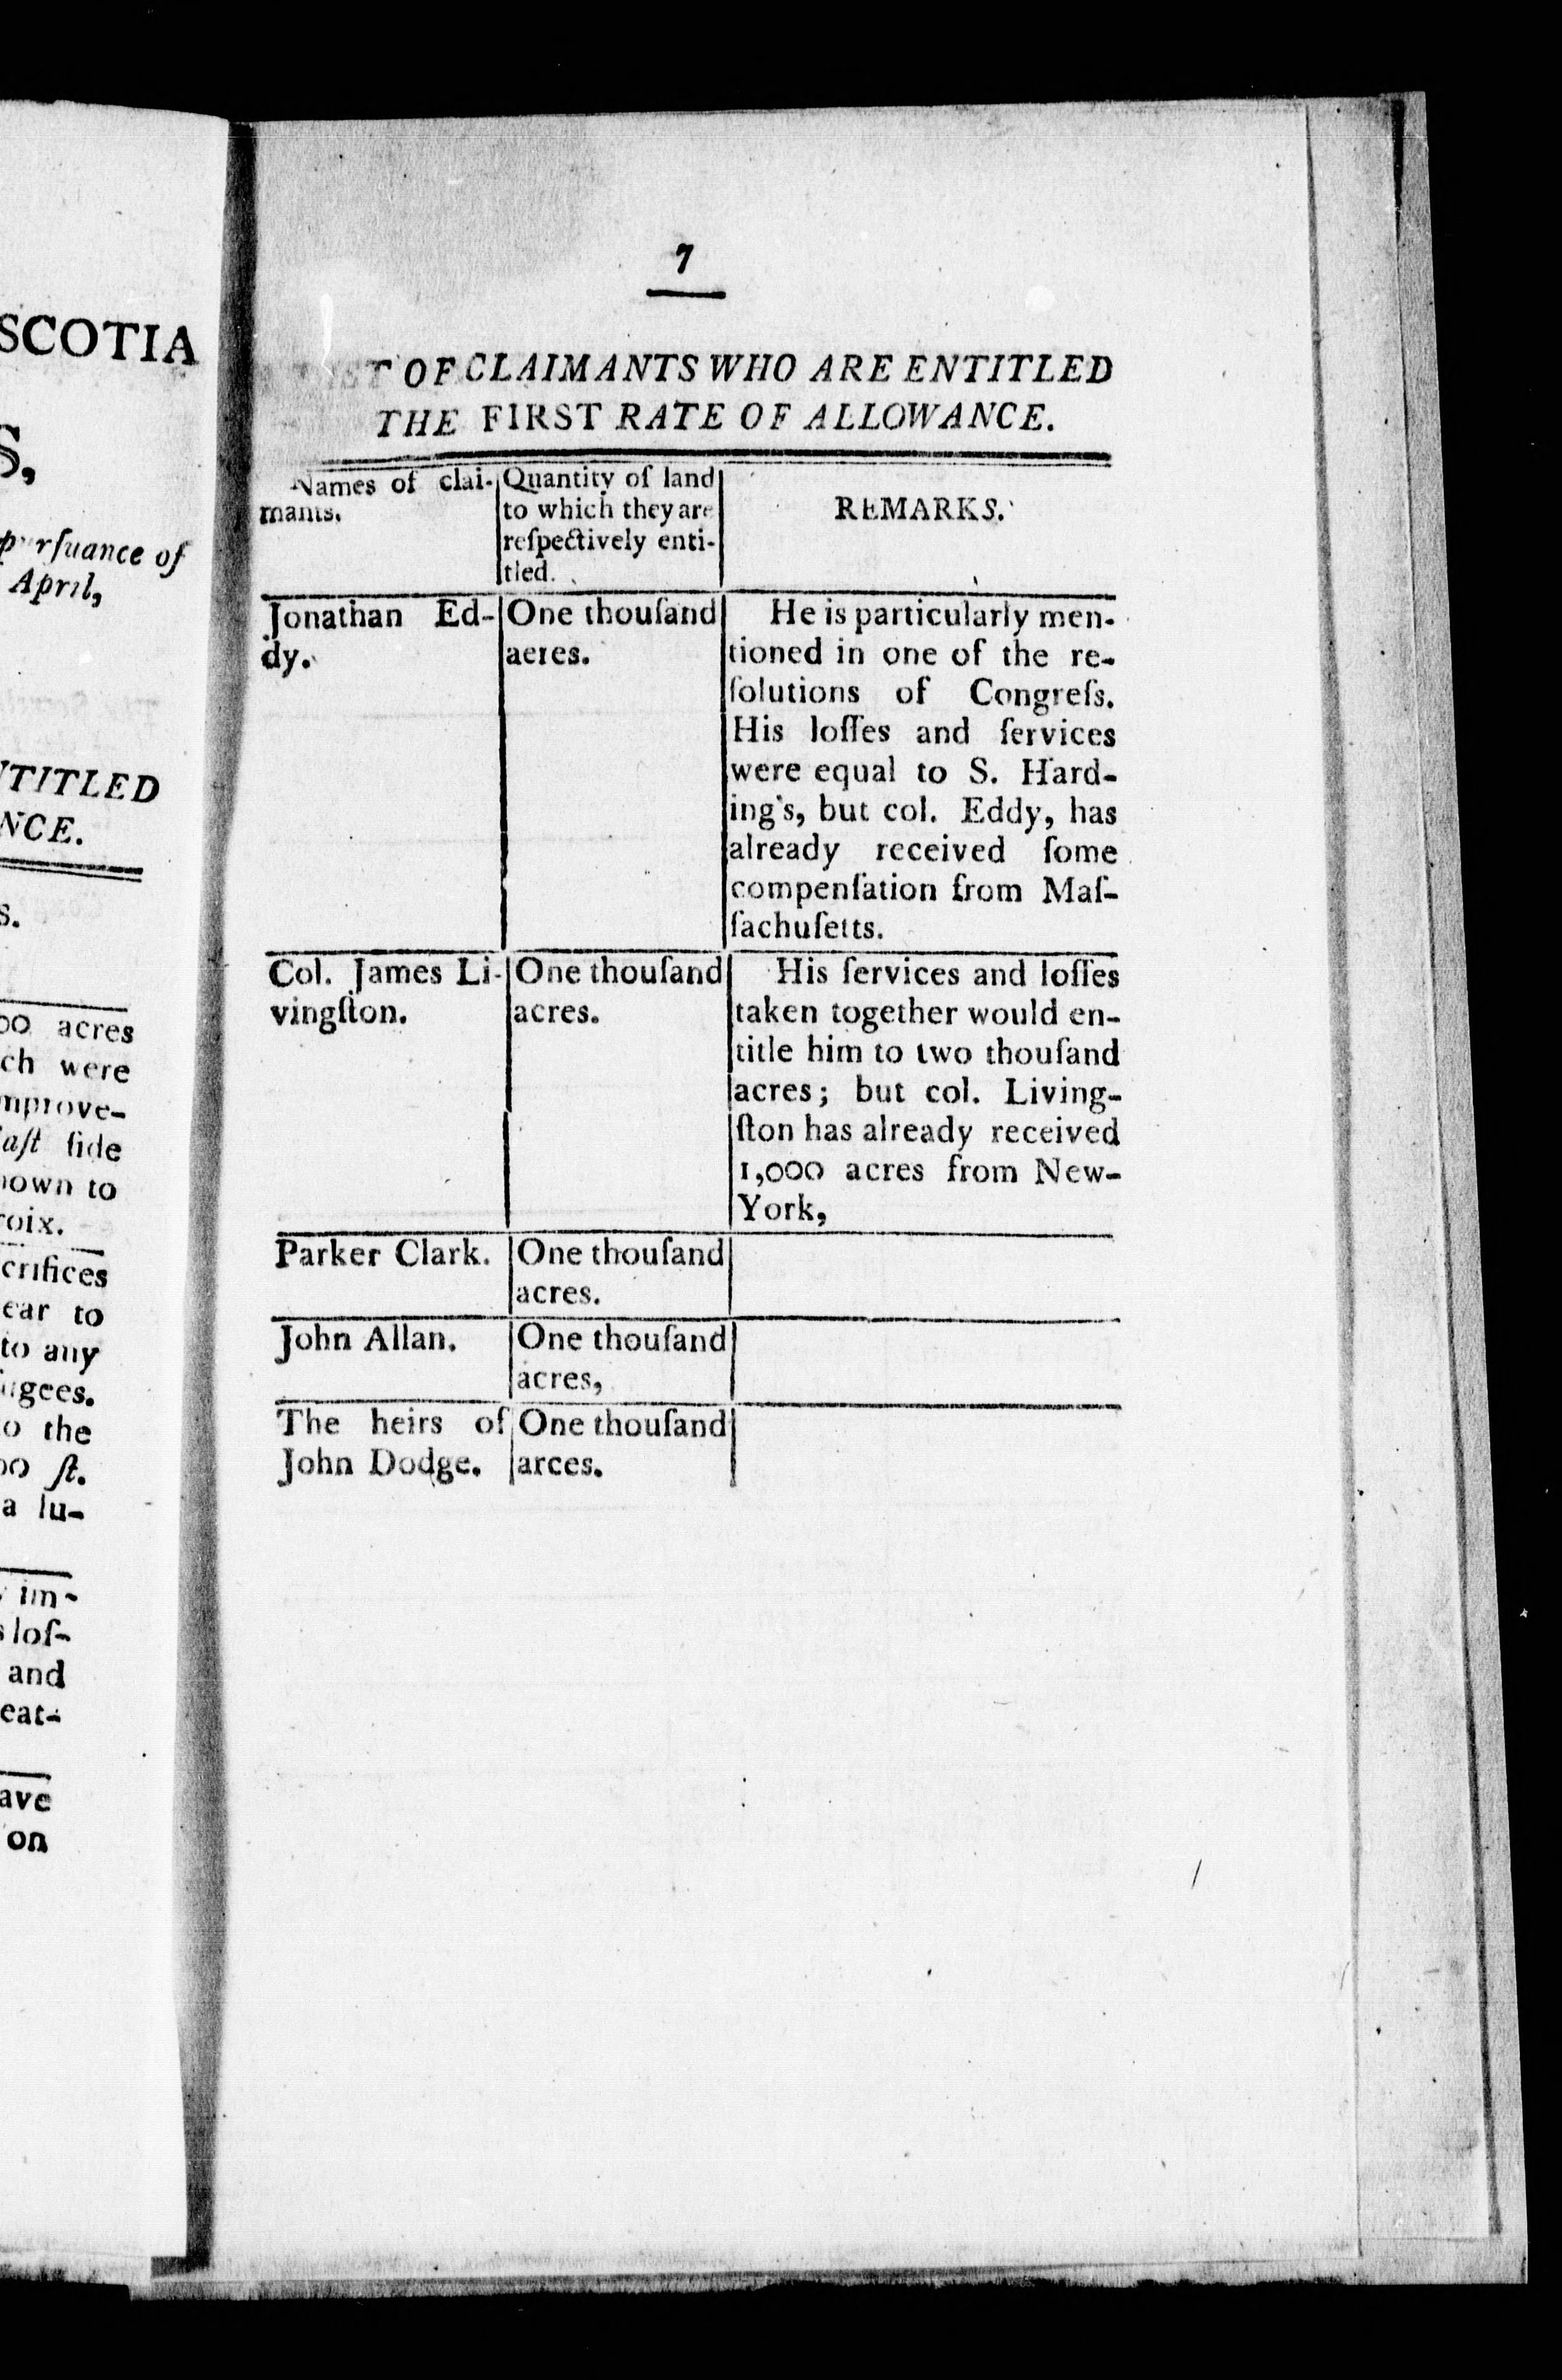 SCOTIA
S,
rſuance of
April,
NTITLED
NCE.
S.
00 acres
ch were
mprove-
aſt ſide
nown to
roix.
crifices
ear to
to any
ugees.
o the
00 ſt.
a lu-
im-
s loſ-
and
eat-
ave
on
7
LIST OF CLAIMANTS WHO ARE ENTITLED
THE FIRST RATE OF ALLOWANCE.
Names of clai-
mants.
Quantity of land
to which they are
reſpectively enti-
tled.
REMARKS.
Jonathan Ed-
dy.
One thouſand
aeres.
He is particularly men-
tioned in one of the re-
ſolutions of Congreſs.
His loſſes and ſervices
were equal to S. Hard-
ing's, but col. Eddy, has
already received ſome
compenſation from Maſ-
ſachuſetts.
Col. James Li-
vingſton.
One thouſand
acres.
His ſervices and loſſes
taken together would en-
title him to two thouſand
acres; but col. Living-
ſton has already received
1,000 acres from New-
York,
Parker Clark.
One thouſand
acres.
John Allan.
One thouſand
acres,
The heirs of
John Dodge.
One thouſand
arces.